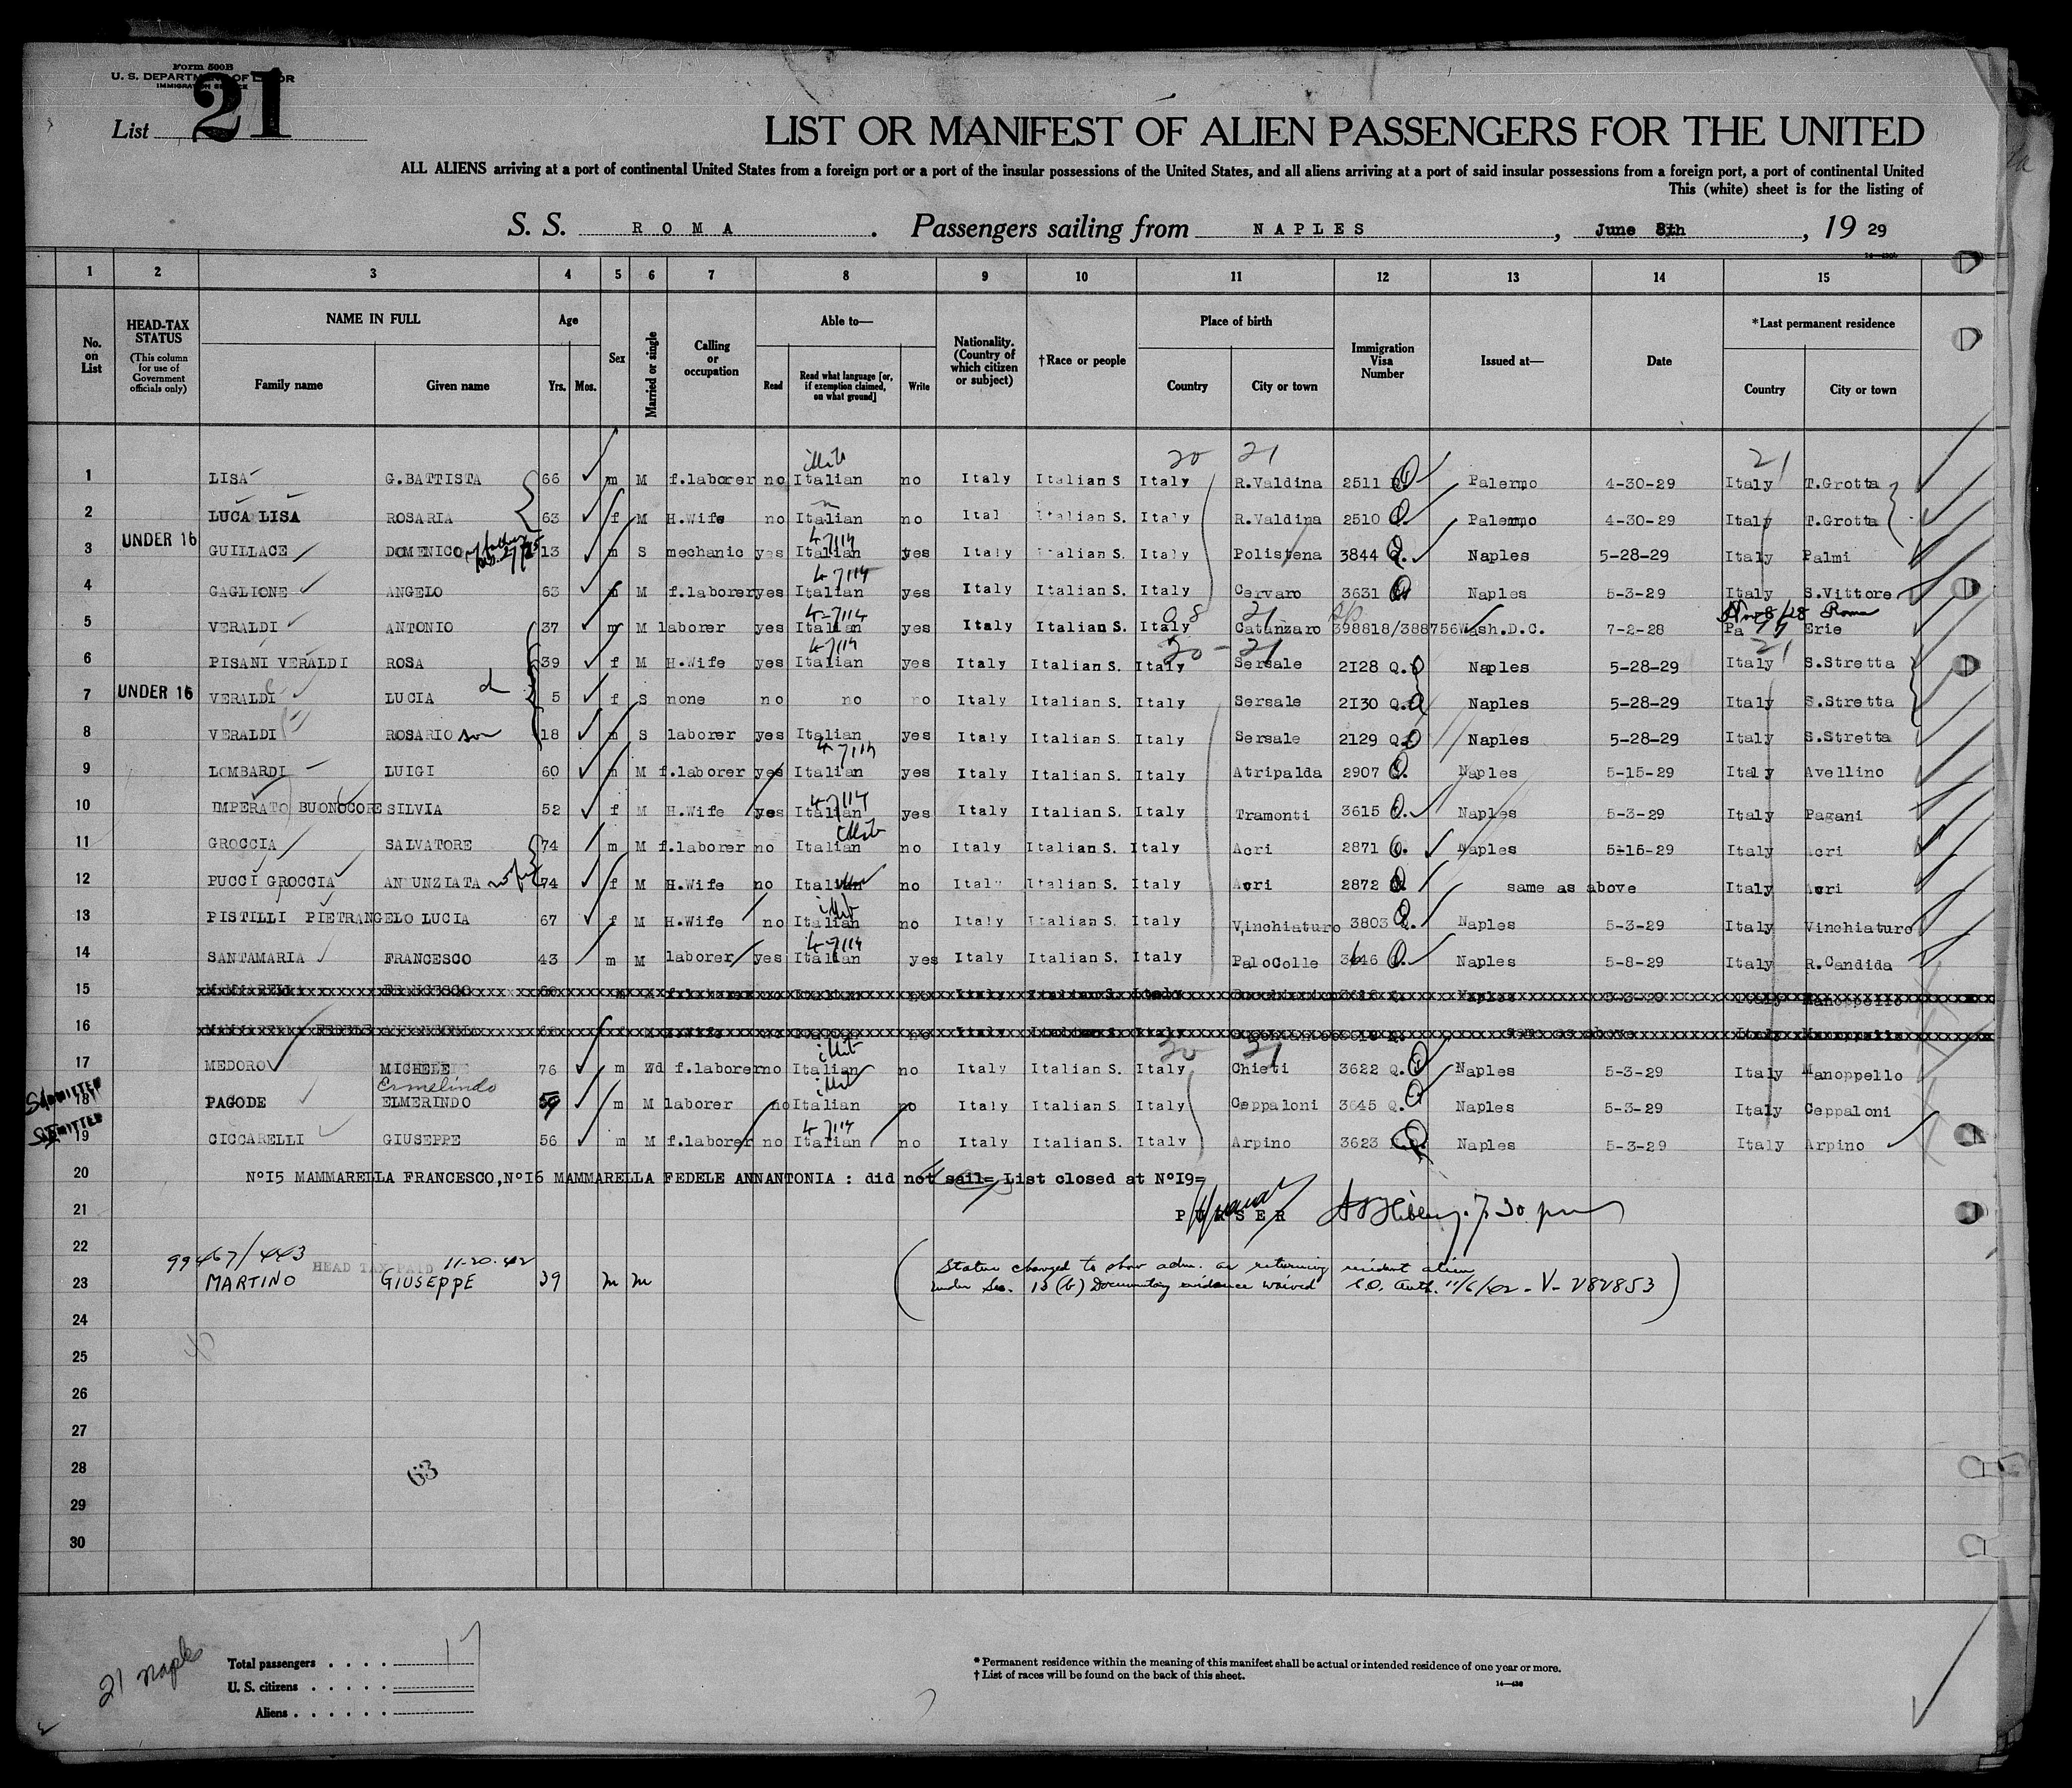 Form 500B
U. S. DEPARTMENT OF LABOR
IMMIGRATION SERVICE
List 21
LIST OR MANIFEST OF ALIEN PASSENGERS FOR THE UNITED
ALL ALIENS arriving at a port of continental United States from a foreign port or a port of the insular possessions of the United States, and all aliens arriving at a port of said insular possessions from a foreign port, a port of continental United
This (white) sheet is for the listing of
S. S. ROMA . Passengers sailing from NAPLES , June 8th , 19 29
1 2 3 4 5 6 7 8 9 10 11 12 13 14 15
No. on List
HEAD-TAX STATUS (This column for use of Government officials only)
NAME IN FULL Family name Given name
Age Yrs. Mos.
Sex
Married or single
Calling or occupation
Able to— Read Read what language [or, if exemption claimed, on what ground] Write
Nationality. (Country of which citizen or subject)
†Race or people
Place of birth Country City or town
Immigration Visa Number
Issued at—
Date
*Last permanent residence Country City or town
20 21 21
1 LISA G.BATTISTA 66 m M f.laborer no Italian no Italy Italian S Italy R.Valdina 2511 Palermo 4-30-29 Italy T.Grotta
2 LUCA LISA ROSARIA 63 f M H.Wife no Italian no Ital Italian S. Italy R.Valdina 2510 Q. Palermo 4-30-29 Italy T.Grotta
3 UNDER 16 GUILLACE DOMENICO 13 m S mechanic yes Italian yes Italy Italian S. Italy Polistena 3844 Q. Naples 5-28-29 Italy Palmi
4 GAGLIONE ANGELO 63 M f.laborer yes Italian yes Italy Italian S. Italy Cervaro 3631 Naples 5-3-29 Italy S.Vittore
5 VERALDI ANTONIO 37 m M laborer yes Italian yes Italy Italian S. Italy Catanzaro 398818/388756 Wash.D.C. 7-2-28 Pa Erie
6 PISANI VERALDI ROSA 39 f M H.Wife yes Italian yes Italy Italian S. Italy Sersale 2128 Q. Naples 5-28-29 Italy S.Stretta
7 UNDER 16 VERALDI LUCIA d 5 f S none no no no Italy Italian S. Italy Sersale 2130 Q. Naples 5-28-29 Italy S.Stretta
8 VERALDI ROSARIO son 18 m S laborer yes Italian yes Italy Italian S. Italy Sersale 2129 Q. Naples 5-28-29 Italy S.Stretta
9 LOMBARDI LUIGI 60 m M f.laborer yes Italian yes Italy Italian S. Italy Atripalda 2907 Naples 5-15-29 Italy Avellino
10 IMPERATO BUONOCORE SILVIA 52 f M H.Wife yes Italian yes Italy Italian S. Italy Tramonti 3615 Q. Naples 5-3-29 Italy Pagani
11 GROCCIA SALVATORE 74 m M f.laborer no Italian no Italy Italian S. Italy Acri 2871 Q. Naples 5-15-29 Italy Acri
12 PUCCI GROCCIA ANNUNZIATA wife 74 f M H.Wife no Italian no Italy Italian S. Italy Acri 2872 same as above Italy Acri
13 PISTILLI PIETRANGELO LUCIA 67 f M H.Wife no Italian no Italy Italian S. Italy Vinchiaturo 3803 Q. Naples 5-3-29 Italy Vinchiaturo
14 SANTAMARIA FRANCESCO 43 m M laborer yes Italian yes Italy Italian S. Italy PaloColle 3646 Q. Naples 5-8-29 Italy R.Candida
15 MAMMARELLA FRANCESCO Italy Italian S. Italy Naples Italy Manoppello
16 FEDELE ANNANTONIA H.Wife Italy Italian S. Italy same as above Italy Manoppello
17 MEDORO MICHELE 76 m Wd f.laborer no Italian no Italy Italian S. Italy Chieti 3622 Q. Naples 5-3-29 Italy Manoppello
Ermelindo
ADMITTED 18 PAGODE ELMERINDO 59 m M laborer no Italian no Italy Italian S Italy Ceppaloni 3645 Q. Naples 5-3-29 Italy Ceppaloni
ADMITTED 19 CICCARELLI GIUSEPPE 56 m M f.laborer no Italian no Italy Italian S. Italy Arpino 3623 Naples 5-3-29 Italy Arpino
20 N°I5 MAMMARELLA FRANCESCO,N°I6 MAMMARELLA FEDELE ANNANTONIA : did not sail= List closed at N°I9=
21 PURSER 7.30 pm
22 99467/443 HEAD TAX PAID 11-20-42 (Status changed to show adm. as returning resident alien
23 MARTINO GIUSEPPE 39 m m under Sec. 13 (b) Documentary evidence waived C.O. Auth. 11/6/42 - V- 282853)
24
25
26
27
28 63
29
30
21 Naples
Total passengers . . . . 17
U. S. citizens . . . . .
Aliens . . . . . .
* Permanent residence within the meaning of this manifest shall be actual or intended residence of one year or more.
† List of races will be found on the back of this sheet.